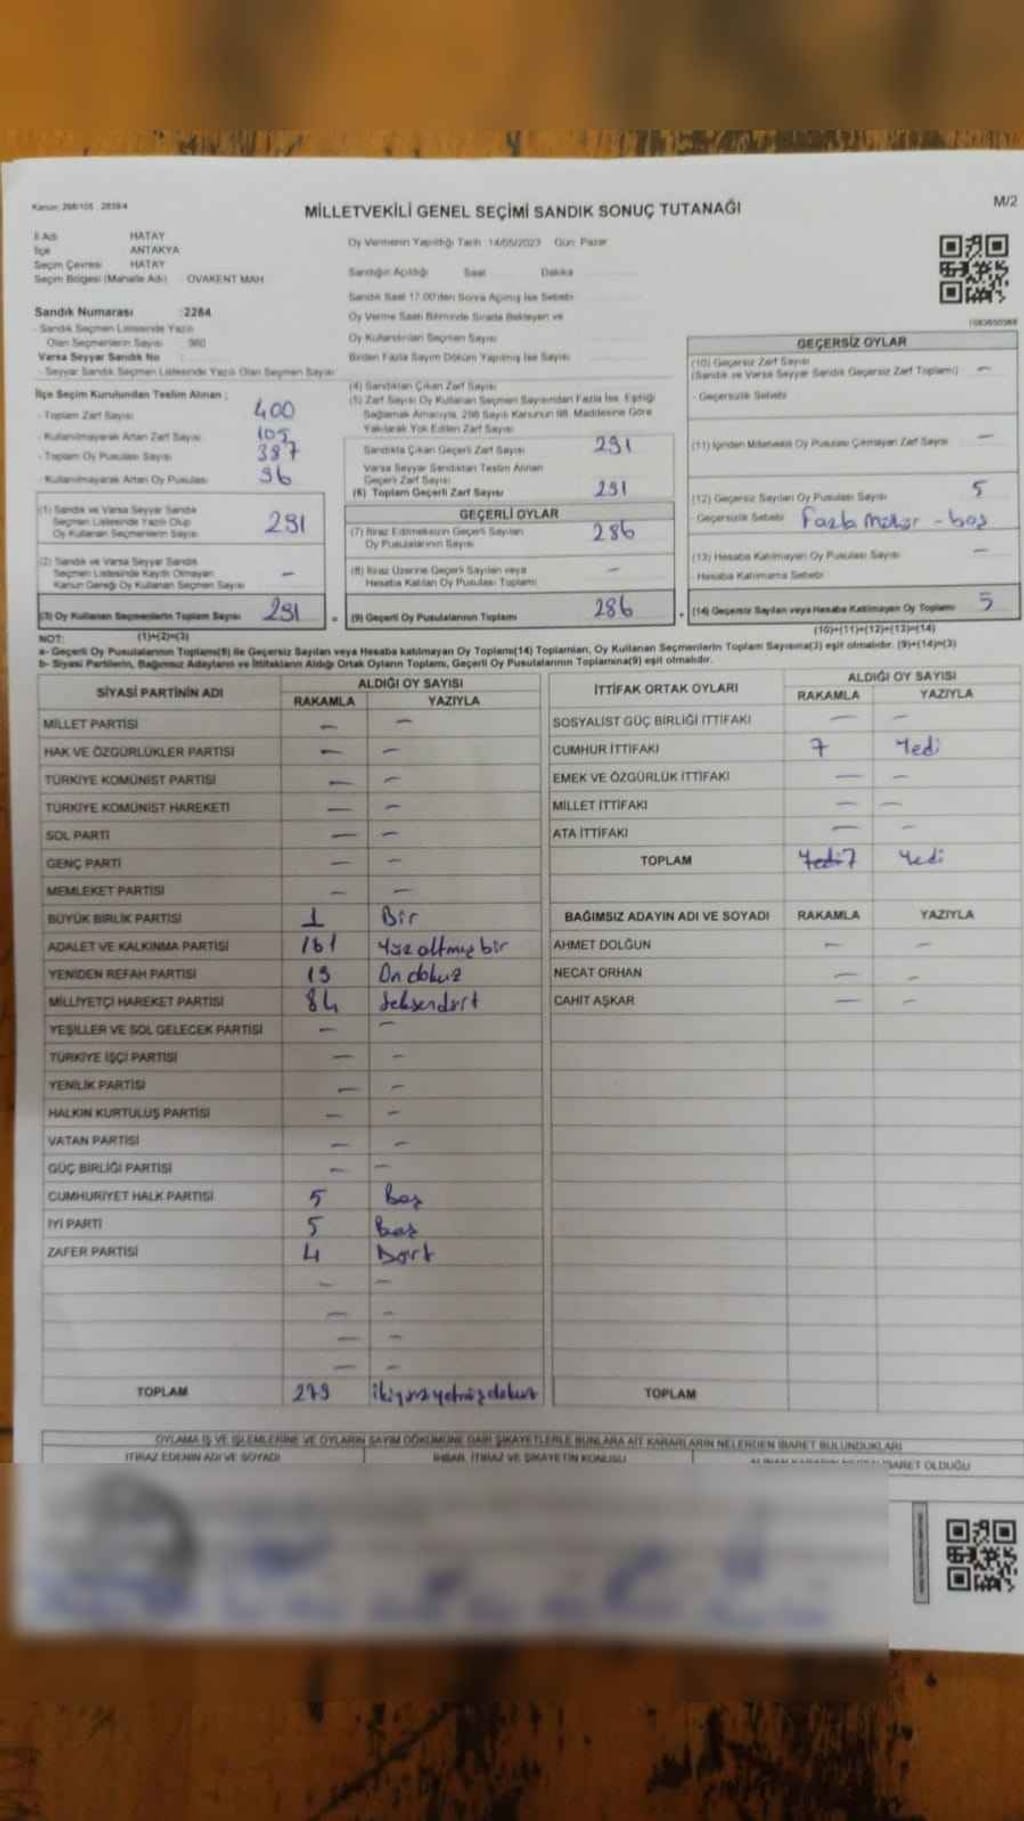 Kanun: 298/105 , 2839/4
MİLLETVEKİLİ GENEL SEÇİMİ SANDIK SONUÇ TUTANAĞI
M/2
İl Adı HATAY
İlçe ANTAKYA
Seçim Çevresi HATAY
Seçim Bölgesi (Mahalle Adı) OVAKENT MAH
Sandık Numarası :2284
- Sandık Seçmen Listesinde Yazılı
Olan Seçmenlerin Sayısı
Varsa Seyyar Sandık No
- Seyyar Sandık Seçmen Listesinde Yazılı Olan Seçmen Sayısı
İlçe Seçim Kurulundan Teslim Alınan ;
- Toplam Zarf Sayısı 400
- Kullanılmayarak Artan Zarf Sayısı 109
- Toplam Oy Pusulası Sayısı 387
- Kullanılmayarak Artan Oy Pusulası 96
(1) Sandık ve Varsa Seyyar Sandık
Seçmen Listesinde Yazılı Olup
Oy Kullanan Seçmenlerin Sayısı 291
(2) Sandık ve Varsa Seyyar Sandık
Seçmen Listesinde Kayıtlı Olmayan
Kanun Gereği Oy Kullanan Seçmen Sayısı -
(3) Oy Kullanan Seçmenlerin Toplam Sayısı 291
Oy Vermenin Yapıldığı Tarih :14/05/2023 Gün: Pazar
Sandığın Açıldığı Saat Dakika
Sandık Saat 17.00'den Sonra Açılmış İse Sebebi
Oy Verme Saati Bitiminde Sırada Bekleyen ve
Oy Kullandırılan Seçmen Sayısı
Birden Fazla Sayım Döküm Yapılmış İse Sayısı
(4) Sandıktan Çıkan Zarf Sayısı
(5) Zarf Sayısı Oy Kullanan Seçmen Sayısından Fazla İse, Eşitliği
Sağlamak Amacıyla, 298 Sayılı Kanunun 98. Maddesine Göre
Yakılarak Yok Edilen Zarf Sayısı
Sandıkta Çıkan Geçerli Zarf Sayısı 291
Varsa Seyyar Sandıktan Teslim Alınan
Geçerli Zarf Sayısı
(6) Toplam Geçerli Zarf Sayısı 291
GEÇERLİ OYLAR
(7) İtiraz Edilmeksizin Geçerli Sayılan
Oy Pusulalarının Sayısı 286
(8) İtiraz Üzerine Geçerli Sayılan veya
Hesaba Katılan Oy Pusulası Toplamı -
(9) Geçerli Oy Pusulalarının Toplamı 286
GEÇERSİZ OYLAR
(10) Geçersiz Zarf Sayısı
(Sandık ve Varsa Seyyar Sandık Geçersiz Zarf Toplamı) -
- Geçersizlik Sebebi
(11) İçinden Milletvekili Oy Pusulası Çıkmayan Zarf Sayısı -
(12) Geçersiz Sayılan Oy Pusulası Sayısı 5
- Geçersizlik Sebebi Fazla Mühür - boş
(13) Hesaba Katılmayan Oy Pusulası Sayısı -
Hesaba Katılmama Sebebi
(14) Geçersiz Sayılan veya Hesaba Katılmayan Oy Toplamı 5
NOT: (1)+(2)=(3) (10)+(11)+(12)+(13)=(14)
a- Geçerli Oy Pusulalarının Toplamı(9) ile Geçersiz Sayılan veya Hesaba katılmayan Oy Toplamı(14) Toplamları, Oy Kullanan Seçmenlerin Toplam Sayısına(3) eşit olmalıdır. (9)+(14)=(3)
b- Siyasi Partilerin, Bağımsız Adayların ve İttifakların Aldığı Ortak Oyların Toplamı, Geçerli Oy Pusulalarının Toplamına(9) eşit olmalıdır.
SİYASİ PARTİNİN ADI ALDIĞI OY SAYISI
RAKAMLA YAZIYLA
MİLLET PARTİSİ - -
HAK VE ÖZGÜRLÜKLER PARTİSİ - -
TÜRKİYE KOMÜNİST PARTİSİ - -
TÜRKİYE KOMÜNİST HAREKETİ - -
SOL PARTİ - -
GENÇ PARTİ - -
MEMLEKET PARTİSİ - -
BÜYÜK BİRLİK PARTİSİ 1 Bir
ADALET VE KALKINMA PARTİSİ 161 Yüz altmış bir
YENİDEN REFAH PARTİSİ 19 On dokuz
MİLLİYETÇİ HAREKET PARTİSİ 84 Seksendört
YEŞİLLER VE SOL GELECEK PARTİSİ - -
TÜRKİYE İŞÇİ PARTİSİ - -
YENİLİK PARTİSİ - -
HALKIN KURTULUŞ PARTİSİ - -
VATAN PARTİSİ - -
GÜÇ BİRLİĞİ PARTİSİ - -
CUMHURİYET HALK PARTİSİ 5 Beş
İYİ PARTİ 5 Beş
ZAFER PARTİSİ 4 Dört
- -
- -
- -
- -
TOPLAM 279 ikiyüzyetmişdokuz
İTTİFAK ORTAK OYLARI ALDIĞI OY SAYISI
RAKAMLA YAZIYLA
SOSYALİST GÜÇ BİRLİĞİ İTTİFAKI - -
CUMHUR İTTİFAKI 7 Yedi
EMEK VE ÖZGÜRLÜK İTTİFAKI - -
MİLLET İTTİFAKI - -
ATA İTTİFAKI - -
TOPLAM Yedi 7 Yedi
BAĞIMSIZ ADAYIN ADI VE SOYADI RAKAMLA YAZIYLA
AHMET DOLĞUN - -
NECAT ORHAN - -
CAHİT AŞKAR - -
TOPLAM
OYLAMA İŞ VE İŞLEMLERİNE VE OYLARIN SAYIM DÖKÜMÜNE DAİR ŞİKAYETLERLE BUNLARA AİT KARARLARIN NELERDEN İBARET BULUNDUKLARI
İTİRAZ EDENİN ADI VE SOYADI
İHBAR, İTİRAZ VE ŞİKAYETİN KONUSU
İBARET OLDUĞU